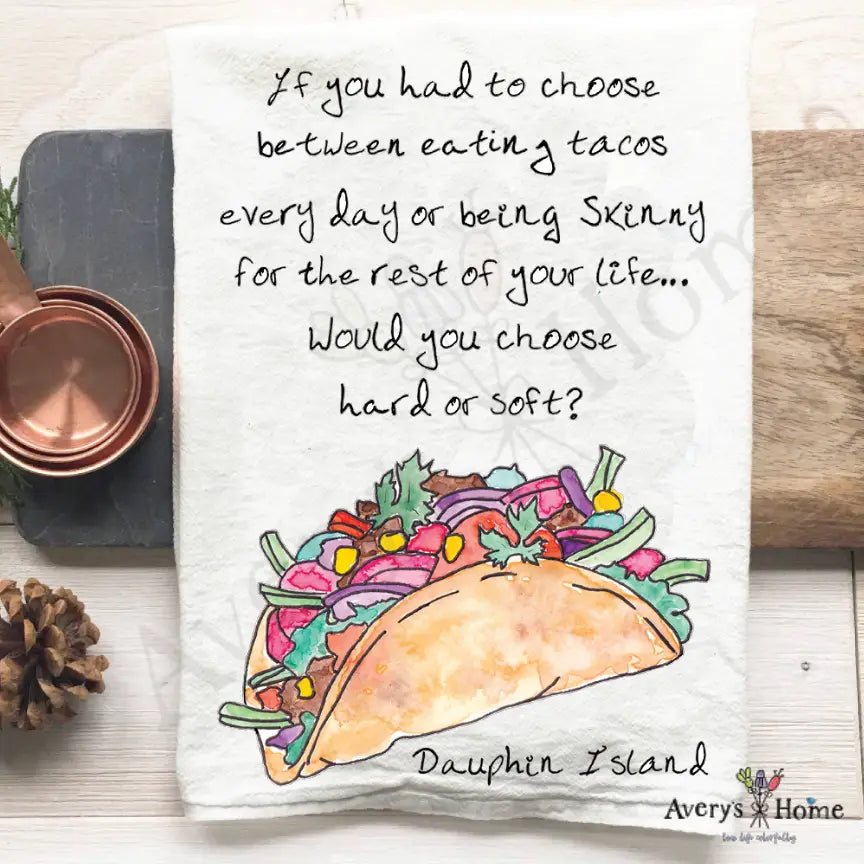 If you had to choose
between eating tacos
every day or being Skinny
for the rest of your life...
Would you choose
hard or soft?
Dauphin Island
Avery's Home
live life colorfully